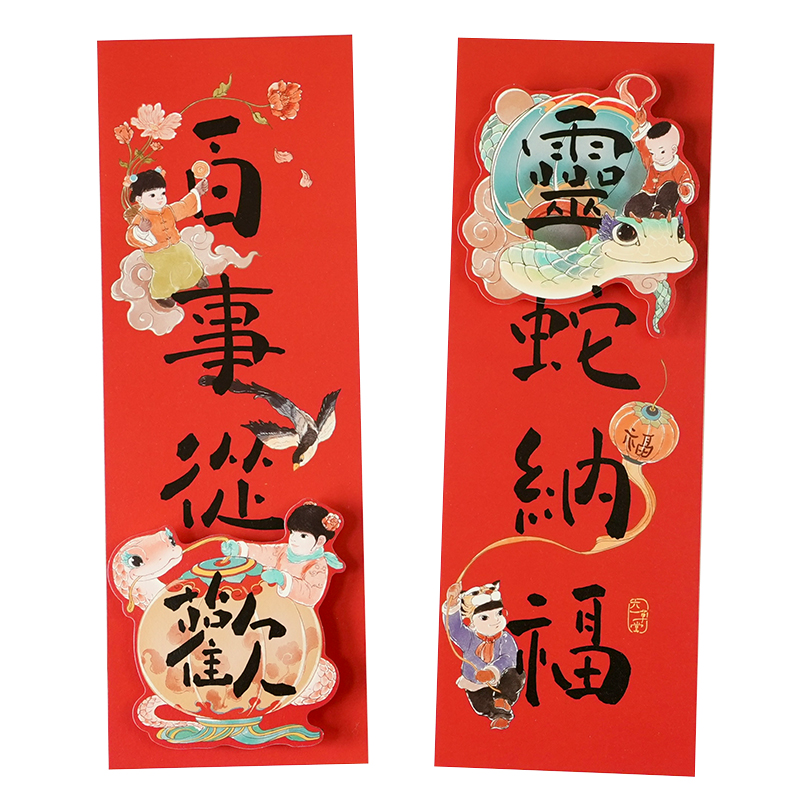 靈蛇納福
福
百事從歡